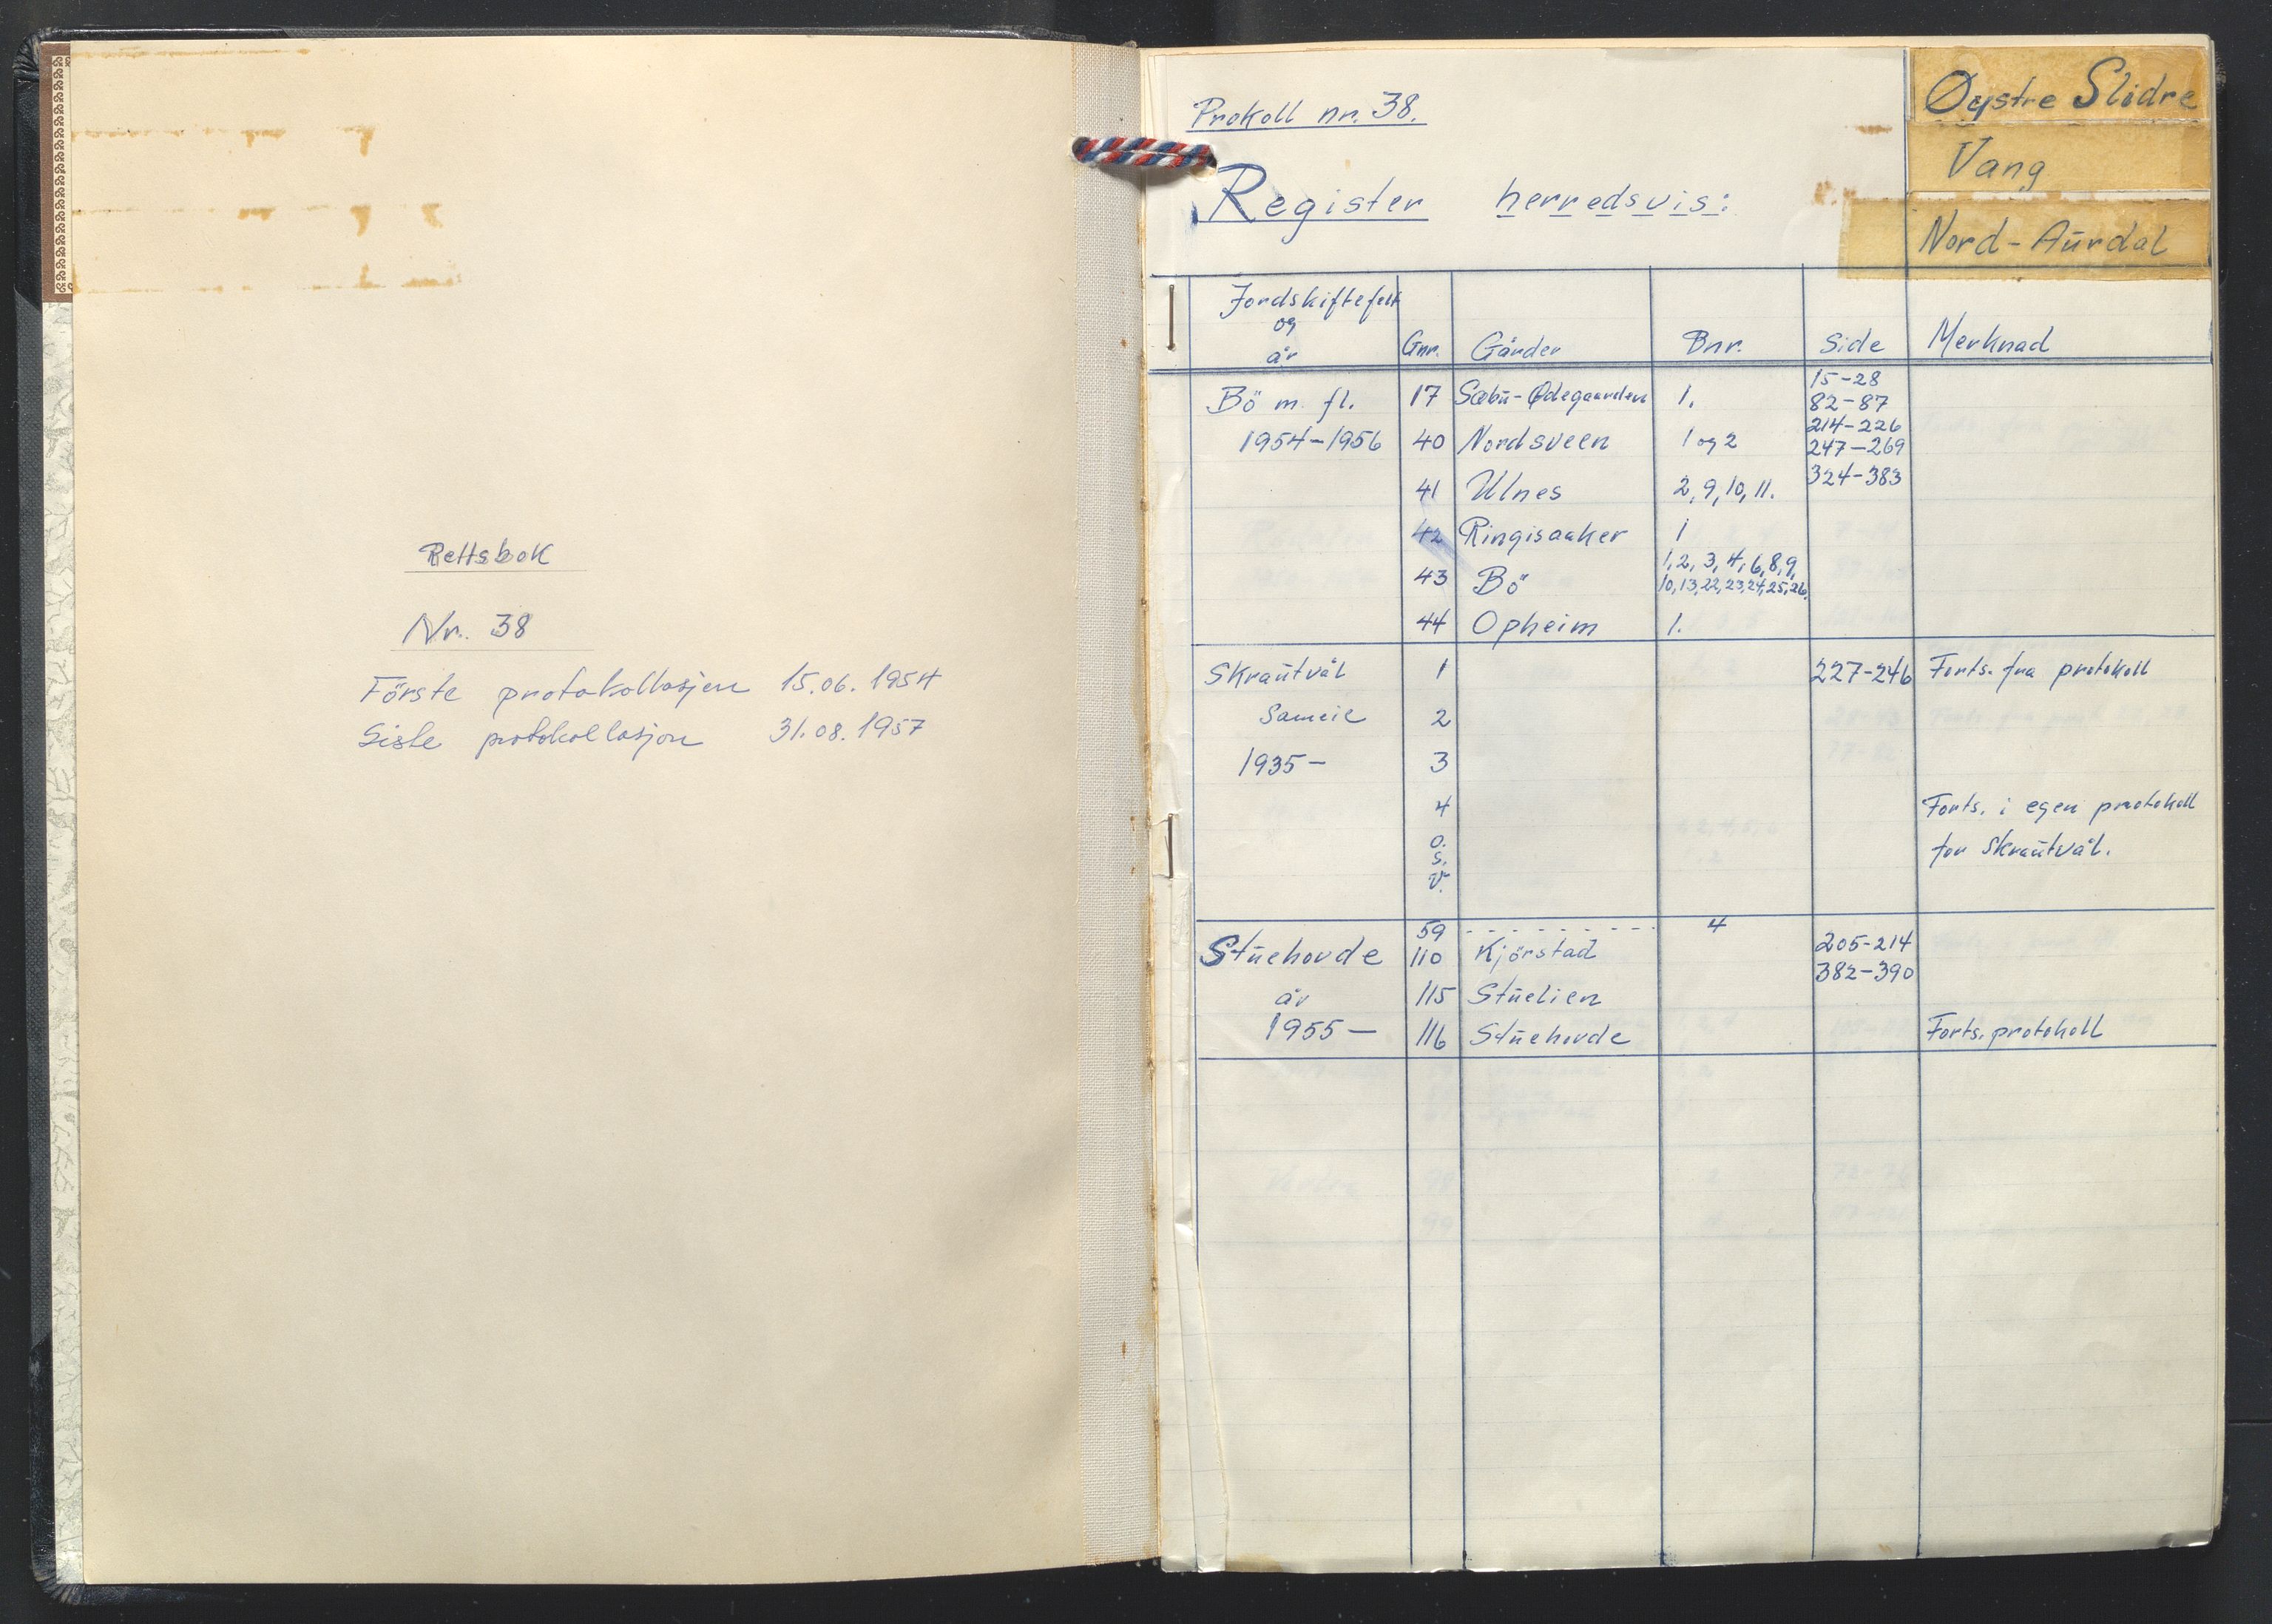 Rettsbok
Nr. 38
Förste protokollasjon 15.06.1954
Siste protokollasjon 31.08.1957
Prokoll nr. 38.
Register herredsvis:
Øystre Slidre
Vang
Nord-Aurdal
Jordskiftefelt og år Gnr. Gårder Bnr. Side Merknad
Bö m. fl. 17 Sæbu-Ødegaarden 1. 15-28
82-87
1954-1956 40 Nordsveen 1 og 2 214-226
247-269
41 Ulnes 2, 9, 10, 11. 324-383
42 Ringisaaker 1
43 Bö 1, 2, 3, 4, 6, 8, 9,
10, 13, 22, 23, 24, 25, 26.
44 Opheim 1.
Skrautvål 1 227-246 Forts. fra protokoll
Sameie 2
1935- 3
4 Forts. i egen protokoll
o. for Skrautvål.
s.
v.
59 - - - - - - - - - 4
Stuehovde 110 Kjörstad 205-214
382-390
år 115 Stuelien
1955- 116 Stuehovde Forts. protokoll